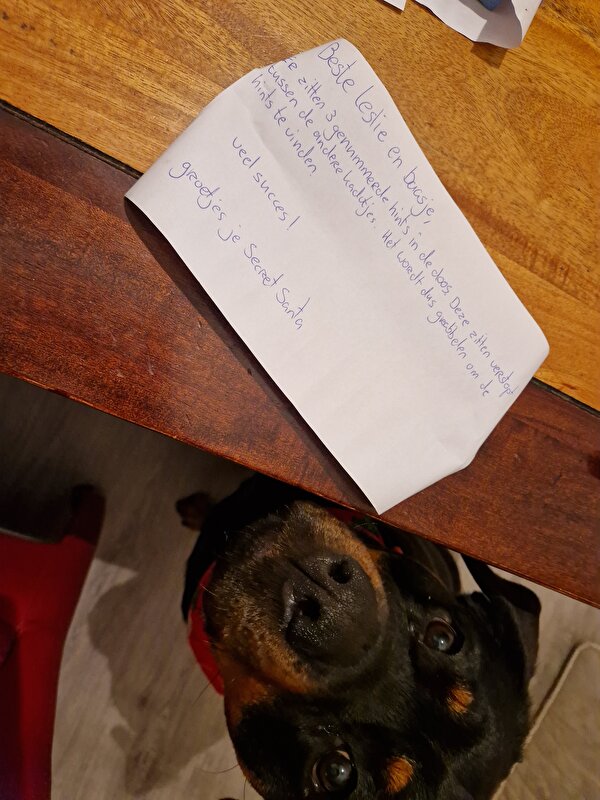 Beste Leslie en baasje,
Er zitten 3 genummeerde hints in de doos. Deze zitten verstopt
tussen de andere kadotjes. Het wordt dus grabbelen om de
hints te vinden
veel succes!
groetjes je Secret Santa